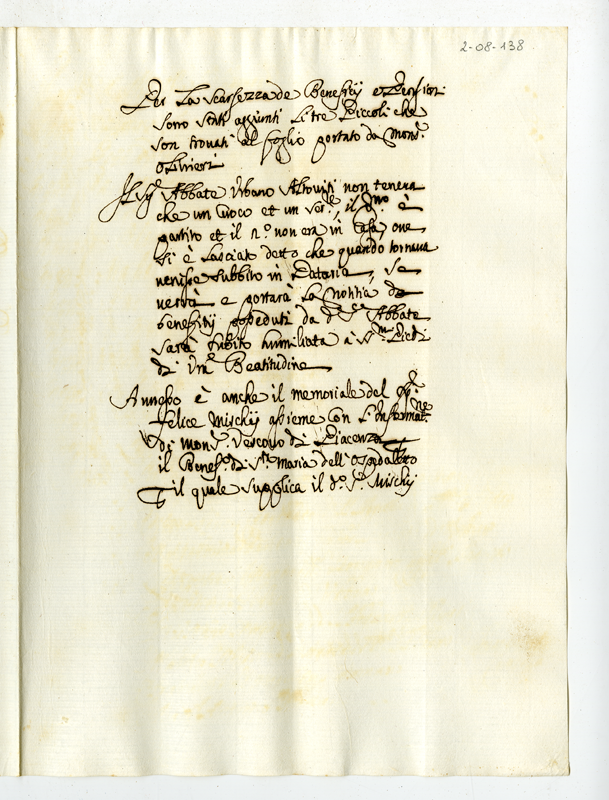 2-08-138
Per la scarsezza de Benefitij e Pensioni
sono stati aggiunti li tre Piccoli che
son trovati al foglio portato da Mons.r
Olivieri
Il Sig.r Abbate Urbano Altoviti non teneva
che un Cuoco et un Ser.re, il p.mo è
partito et il 2.o non era in Casa, ove
si è lasciato detto che quando tornava
venisse subbito in Dataria, se
verrà e portarà la notitia de
benefitij posseduti da d.o S.r Abbate
sarà subito humiliata a S.mi Piedi
di V.ra Beatitudine
Annesso è anche il memoriale del
Felice Mischij assieme con l'Informat.ne
di Mons.r Vescovo di Piacenza
il Benef.o di S.ta Maria dell'Ospedaletto
il quale supplica il d.o S.r Mischij